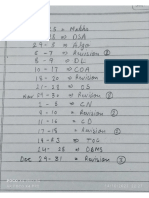 23 → Maths
28 ⇒ DSA
29 - 5 → Algo
5 - 7 → Revision ①
8 - 9 ⇒ DL
10 - 17 ⇒ COA
18 - 20 ⇒ Revision
21 - 28 ⇒ OS
Nov 29 - 30 ⇒ Revision
1 - 8 ⇒ CN
9 - 10 ⇒ Revision
11 - 16 ⇒ CD
17 - 18 ⇒ Revision
18 - 23 ⇒ TOC
24 - 28 ⇒ DBMS
Dec 29 - 31 ⇒ Revision